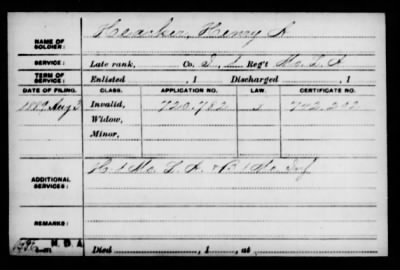 NAME OF SOLDIER: Hearker, Henry A.
SERVICE: Late rank, Co. I, 2 Reg't Mo. L. A.
TERM OF SERVICE: Enlisted , 1 Discharged , 1
DATE OF FILING. CLASS. APPLICATION NO. LAW. CERTIFICATE NO.
1889 Aug 3 Invalid, 720.782
Widow,
Minor,
ADDITIONAL SERVICES: H. 1 Mo. L. A. & B. 1 Mo. Inf
REMARKS:
Died , 1 , at